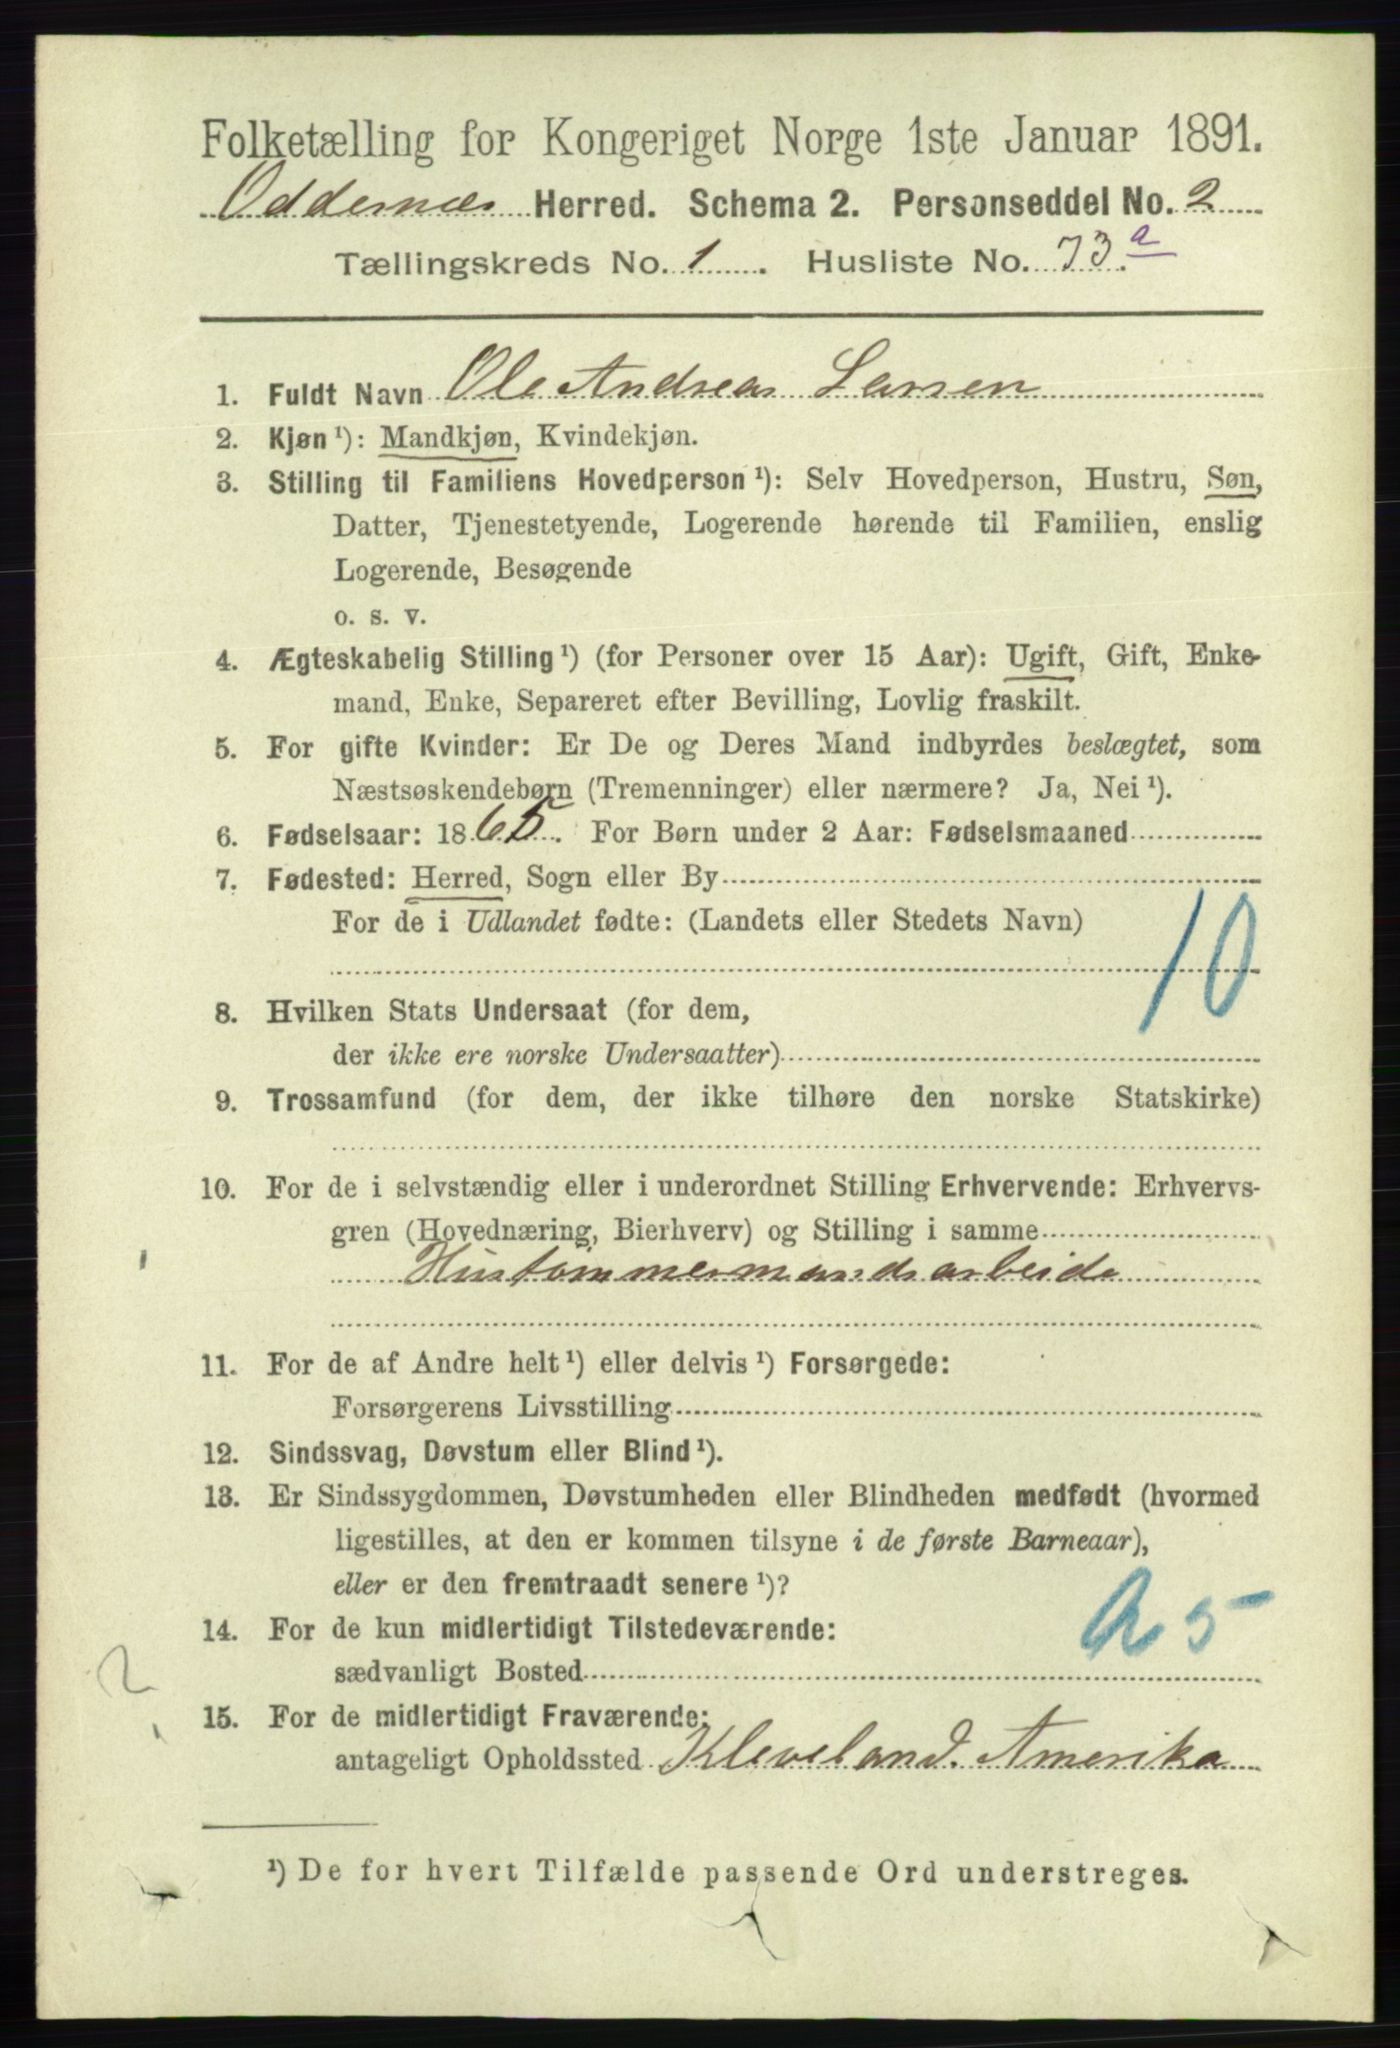 Folketælling for Kongeriget Norge 1ste Januar 1891.
Oddernes Herred. Schema 2. Personseddel No. 2
Tællingskreds No. 1. Husliste No. 73.a
1. Fuldt Navn Ole Andreas Larsen
2. Kjøn ¹): Mandkjøn, Kvindekjøn.
3. Stilling til Familiens Hovedperson ¹): Selv Hovedperson, Hustru, Søn,
Datter, Tjenestetyende, Logerende hørende til Familien, enslig
Logerende, Besøgende
o. s. v.
4. Ægteskabelig Stilling ¹) (for Personer over 15 Aar): Ugift, Gift, Enke-
mand, Enke, Separeret efter Bevilling, Lovlig fraskilt.
5. For gifte Kvinder: Er De og Deres Mand indbyrdes beslægtet, som
Næstsøskendebørn (Tremenninger) eller nærmere? Ja, Nei ¹).
6. Fødselsaar: 1865. For Børn under 2 Aar: Fødselsmaaned
7. Fødested: Herred, Sogn eller By
For de i Udlandet fødte: (Landets eller Stedets Navn)
10
8. Hvilken Stats Undersaat (for dem,
der ikke ere norske Undersaatter)
9. Trossamfund (for dem, der ikke tilhøre den norske Statskirke)
10. For de i selvstændig eller i underordnet Stilling Erhvervende: Erhvervs-
gren (Hovednæring, Bierhverv) og Stilling i samme
Hustømmermandsarbeide
11. For de af Andre helt ¹) eller delvis ¹) Forsørgede:
Forsørgerens Livsstilling
12. Sindssvag, Døvstum eller Blind ¹).
13. Er Sindssygdommen, Døvstumheden eller Blindheden medfødt (hvormed
ligestilles, at den er kommen tilsyne i de første Barneaar),
eller er den fremtraadt senere ¹)?
14. For de kun midlertidigt Tilstedeværende:
sædvanligt Bosted
15. For de midlertidigt Fraværende:
antageligt Opholdssted Kleveland. Amerika
¹) De for hvert Tilfælde passende Ord understreges.